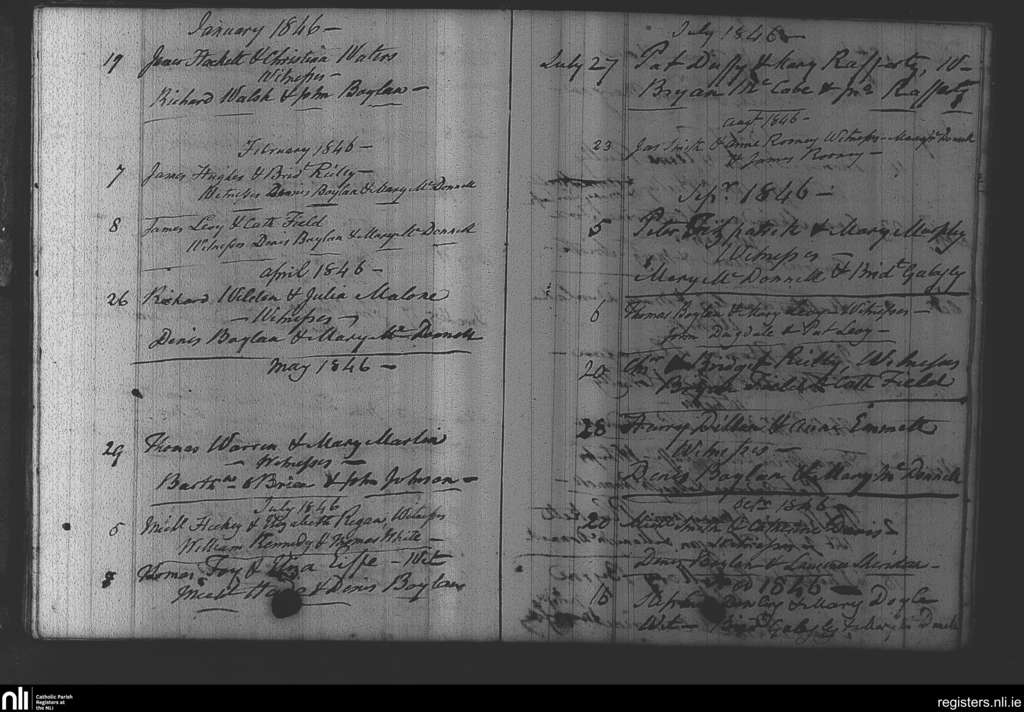 January 1846 -
19 James Hackett & Christina Waters
Witnesses -
Richard Walsh & John Boylan -
February 1846 -
7 James Hughes & Brid.t Reilly -
Witnesses Dennis Boylan & Mary McDonnell
8 James Levy & Cath Field
Witnesses Denis Boylan & Mary McDonnell
April 1846 -
26 Richard Weldon & Julia Malone
- Witnesses -
Denis Boylan & Mary Mc Donnell
May 1846 -
29 Thomas Warren & Mary Martin
- Witnesses -
Barth.w O Brien & John Johnson -
July 1846
5 Mich.l Hickey & Elizabeth Regan, Witnesses
William Kennedy & Thomas White -
Thomas Foy & Eliza Eiffe - Wit
Mich & Denis Boylan
July 1846 -
July 27 Pat Duffy & Mary Rafferty, W-
Bryan Mc Cabe & Jno Rafferty
Augt 1846 -
23 Jas & Anne Rooney Witnesses - Donnell
& James Rooney -
Sepr. 1846 -
5 Peter Fitzpatrick & Mary Murphy
Witnesses
Mary Mc Donnell & Brid.t
6 Thomas Boylan & Mary Levy - Witnesses -
John Dugdale & Pat Levy -
20 Chr & Bridget Reilly, Witnesses
Field & Cath Field
28 Harry Dillon & Anne Emmett
Witnesses -
Denis Boylan & Mary Mc Donnell
Octr 1846
20 Smith & Catherine
Denis Boylan &
1846 -
18 & Mary Doyle
Wit - Brid.t & Mary Mc Donnell
nli
Catholic Parish
Registers at
the NLI
registers.nli.ie